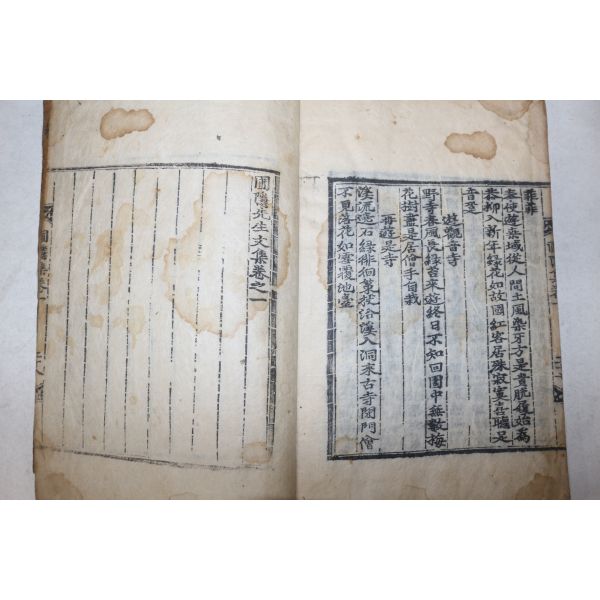 霏霏
奉使遊桑域從人問土風染牙方是貴脫履始爲
恭柳入新年綠花如故國紅客居殊寂寞喜聽足
音跫
遊觀音寺
野寺春風長綠苔來遊終日不知回園中無數梅
花樹盡是居僧手自栽
再遊是寺
溪流遶石綠徘徊策杖沿溪入洞來古寺閉門僧
不見落花如雪覆池臺
圃隱先生文集卷之一